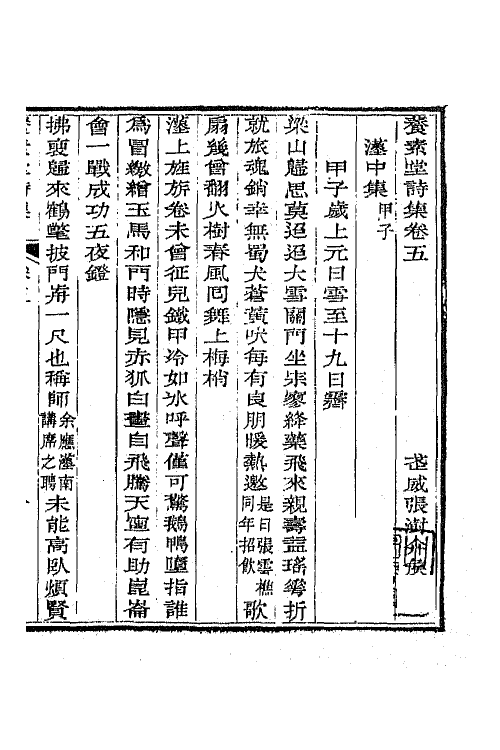 養素堂詩集卷五
武威張澍介侯
漢中集甲子
甲子歲上元日雪至十九日霽
梁山歸思莫迢迢大雪關門坐寂寥絳藥飛來親壽盃瑤華折
就旅魂銷幸無蜀犬蒼黃吠每有良朋暖熱邀是日張雲樵同年招飲歌
扇幾曾翻火樹春風同舞上梅梢
漢上旌旂卷未曾征兒鐵甲冷如冰呼聲僅可驚鵝鴨墮指誰
為冒繳繒玉馬和門時隱見赤狐白晝自飛騰天連有助崑崙
會一戰成功五夜鐙
拂衷歸來鶴氅披門庭一尺也稱師余應漢南講席之聘未能高臥煩賢